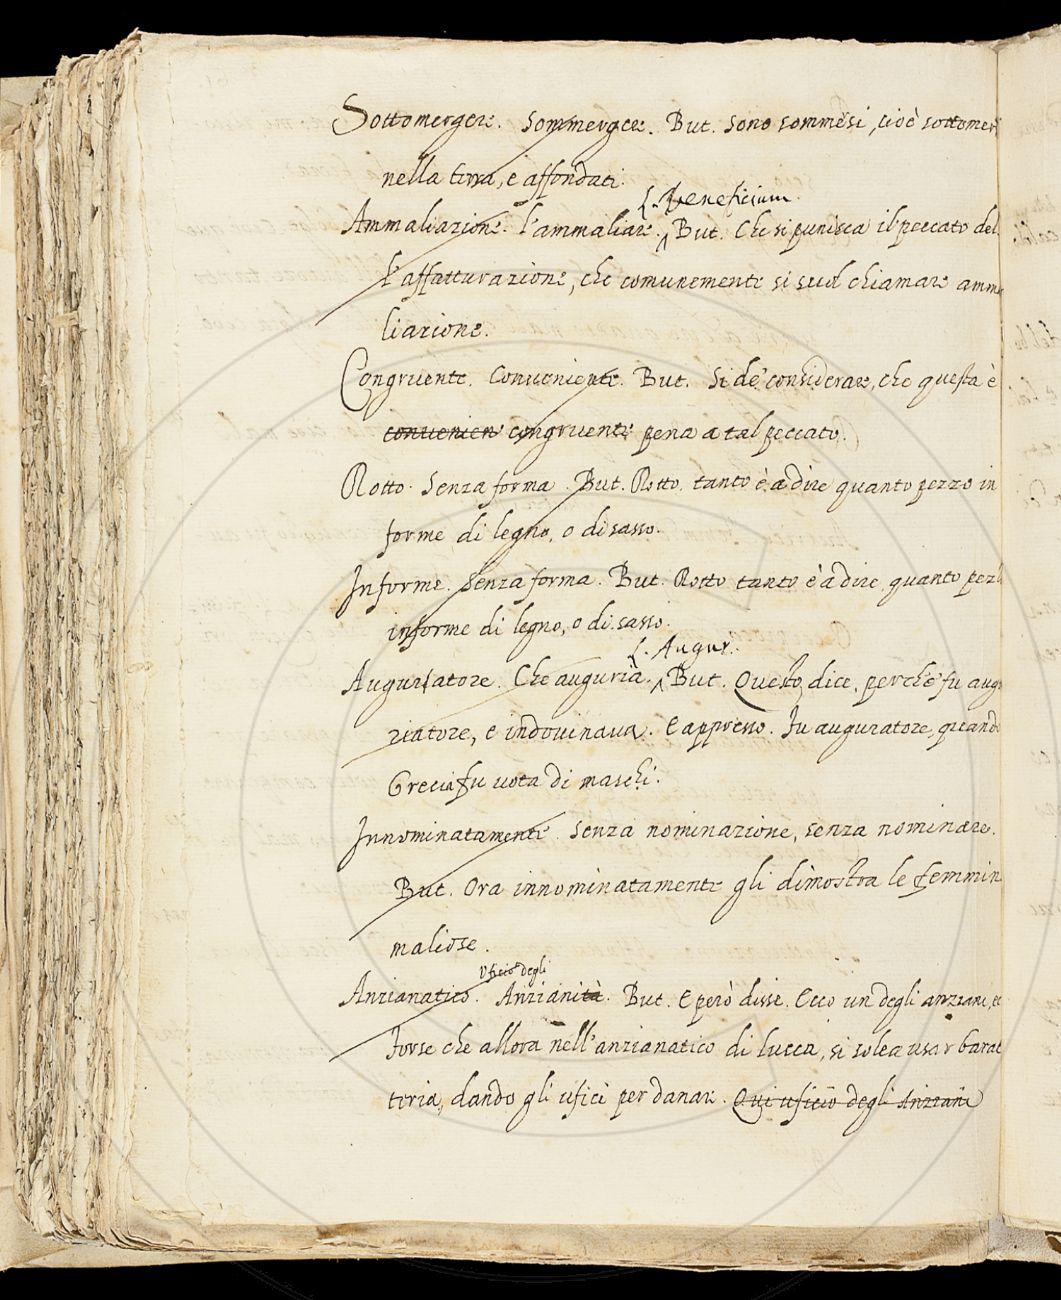 Sottomergere. Sommergere. But. Sono sommersi, cioè sottomer
nella terra, e affondati.
L. Veneficium.
Ammaliazione. l'ammaliare. But. Che si punisca il peccato del
l'affatturazione, che comunemente si suol chiamare amma
liazione.
Congruente. Conveniente. But. Si de' considerare, che questa è
convenien congruente pena a tal peccato.
Rotto. Senza forma. But. Rotto. tanto è a dire quanto pezzo in
forme di legno, o di sasso.
Informe. Senza forma. But. Rotto tanto è a dire, quanto pez
informe di legno, o di sasso.
L. Augur.
Auguriatore. Che auguria. But. Questo dice, perchè fu augu
riatore, e indovinava. E appresso. Fu auguratore, quando
Grecia fu vota di maschi.
Innominatamente. Senza nominazione, senza nominare.
But. Ora innominatamente gli dimostra le femmin
maliose.
Uficio degli
Anzianatico. Anzianità. But. E però disse. Ecco un degli anziani, e
forse che allora nell'anzianatico di Lucca, si solea usar barat
teria, dando gli ufici per danari. Qui uficio degli Anziani